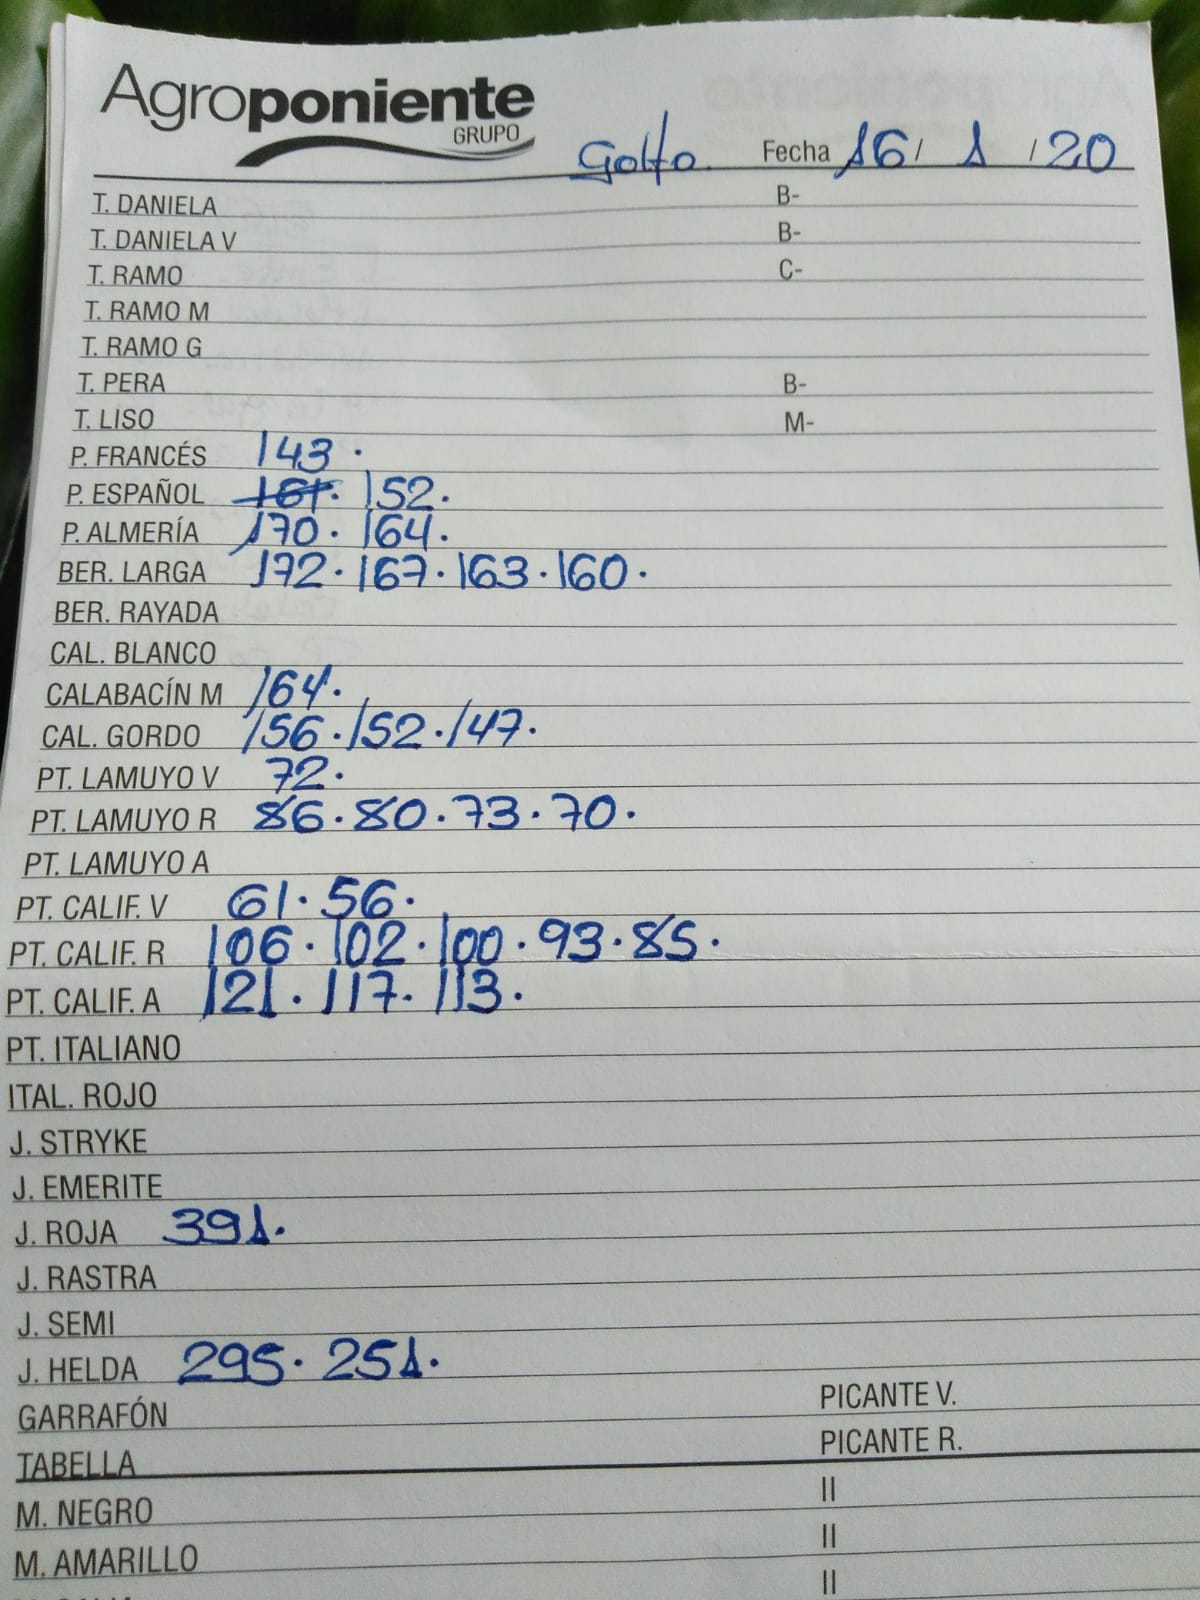 Agroponiente
GRUPO
Golfo. Fecha 16/ 1 /20
T. DANIELA B-
T. DANIELA V B-
T. RAMO C-
T. RAMO M
T. RAMO G
T. PERA B-
T. LISO M-
P. FRANCÉS 143.
P. ESPAÑOL 161. 152.
P. ALMERÍA 170. 164.
BER. LARGA 172. 167. 163. 160.
BER. RAYADA
CAL. BLANCO
CALABACÍN M 164.
CAL. GORDO 156. 152. 147.
PT. LAMUYO V 72.
PT. LAMUYO R 86. 80. 73. 70.
PT. LAMUYO A
PT. CALIF. V 61. 56.
PT. CALIF. R 106. 102. 100. 93. 85.
PT. CALIF. A 121. 117. 113.
PT. ITALIANO
ITAL. ROJO
J. STRYKE
J. EMERITE
J. ROJA 391.
J. RASTRA
J. SEMI
J. HELDA 295. 251.
GARRAFÓN PICANTE V.
TABELLA PICANTE R.
M. NEGRO II
M. AMARILLO II
II